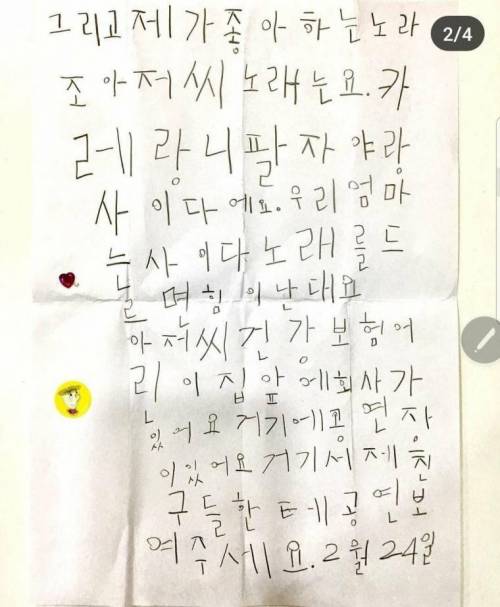 그리고제가좋아하는노라
2/4
조아저씨노래는요.카
레랑니팔자야랑
사이다에요.우리엄마
는사이다노래를드
르면힘이난대요
아저씨건강보험어
린이집앞에회사가
있어요거기에공연자
이있어요거기서제친
구들한테공연보
여주세요.2월24일